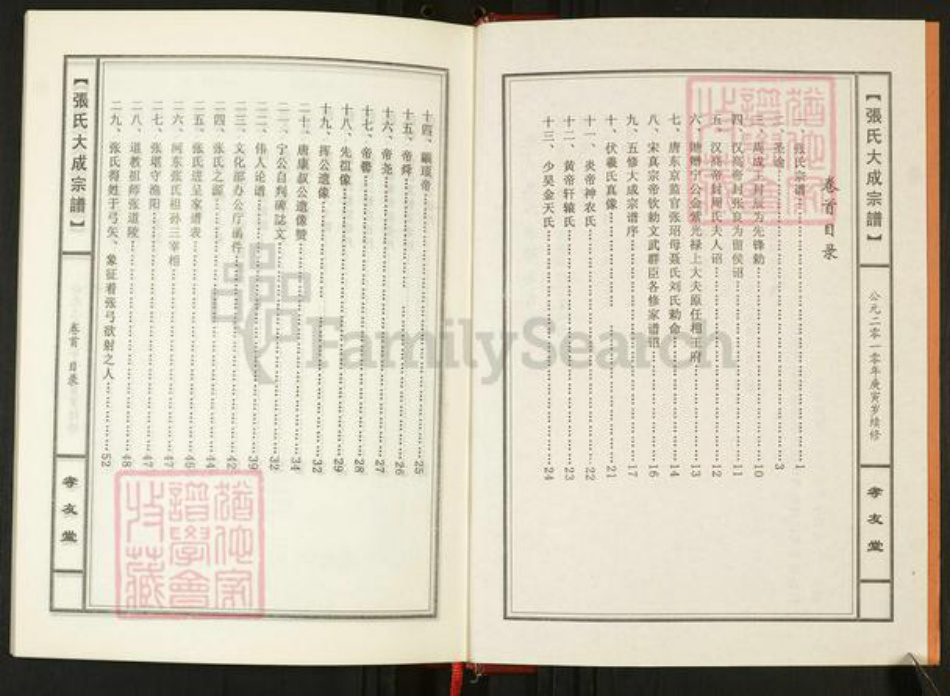 【張氏大成宗譜】
公元二零一零年庚寅岁续修
孝友堂
卷首目录
一、张氏宗谱……1
二、圣谕……3
三、周成王封辰为先锋勅……10
四、汉高帝封张良为留侯诏……11
五、汉高帝封周氏夫人诏……12
六、赠宁公金紫光禄上大夫原任相王府……13
七、唐东京监官张玿母聂氏刘氏勅命……14
八、宋真宗帝钦勅文武群臣各修家谱诏……16
九、五修大成宗谱序……17
十、伏羲氏真像……21
十一、炎帝神农氏……22
十二、黄帝轩辕氏……23
十三、少昊金天氏……24
十四、颛顼帝……25
十五、帝舜……26
十六、帝尧……27
十七、帝喾……28
十八、先祖像……29
十九、挥公遗像……32
二十、唐康叔公遗像赞……34
二一、宁公自判碑誌文……32
二二、伟人论谱……39
二三、文化部办公厅函件……42
二四、张氏之源……44
二五、张氏进呈家谱表……45
二六、河东张氏祖孙三宰相……47
二七、张堪守渔阳……47
二八、道教祖师张道陵……48
二九、张氏得姓于弓矢、象征着张弓欲射之人……52
【張氏大成宗譜】
卷首 目录
孝友堂
FamilySearch